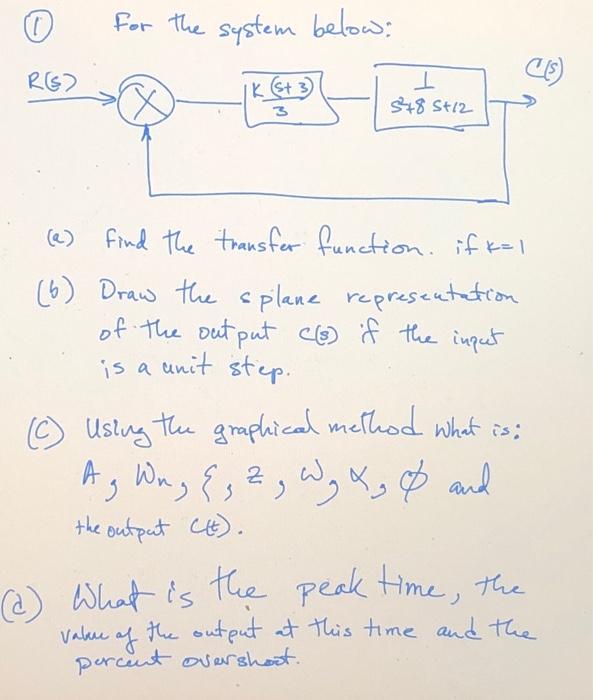 ① For the system below:
R(s)
K(s+3)
3
1
s²+8s+12
C(s)
(a) Find the transfer function. if K=1
(b) Draw the s plane representation
of the output C(s) if the input
is a unit step.
(C) Using the graphical method what is:
A, Wn, ξ, z, ω, α, φ and
the output C(t).
(d) What is the peak time, the
value of the output at this time and the
percent overshoot.